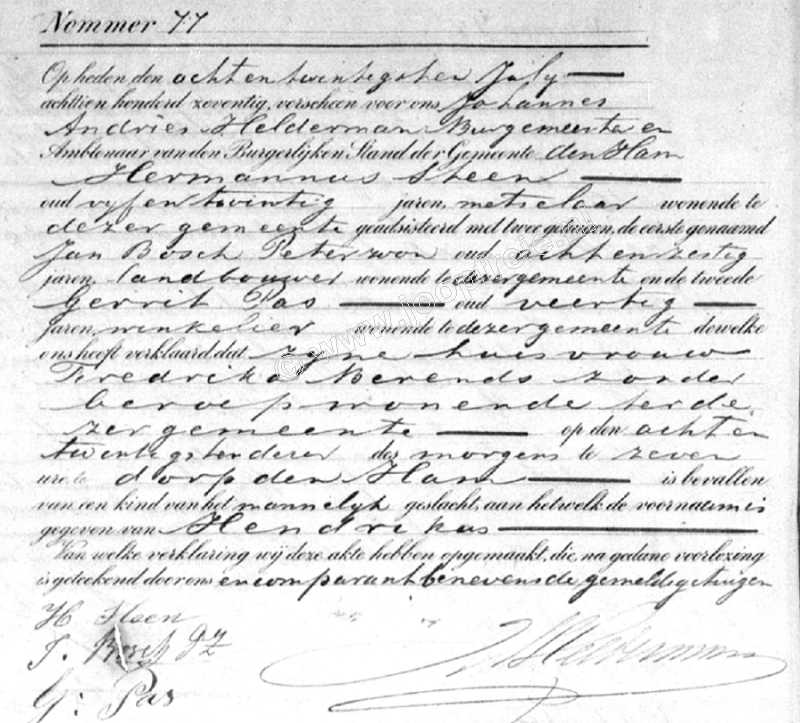 Nommer 77
Op heden den achtentwintigsten July
achttien honderd zeventig, verscheen voor ons Johannes
Andries Helderman Burgemeester en
Ambtenaar van den Burgerlijken Stand der Gemeente den Ham
Hermannus Steen
oud vyfentwintig jaren, metselaar wonende te
dezer gemeente geadsisteerd met twee getuigen, de eerste genaamd
Jan Bosch Peterzoon oud achtenzestig
jaren, landbouwer wonende te dezergemeente en de tweede
Gerrit Pas oud veertig
jaren, winkelier wonende te dezergemeente dewelke
ons heeft verklaard dat zyne huisvrouw
Fredrika Berends zonder
beroep wonende ter de
zergemeente op den achten
twintigstendezer des morgens te zeven
ure, te dorp den Ham is bevallen
van een kind van het mannelyk geslacht, aan hetwelk de voornaam is
gegeven van Hendrikus
Van welke verklaring wij deze akte hebben opgemaakt, die, na gedane voorlezing
is geteekend door ons en comparant benevens de gemelde getuigen
H Steen
J. Bosch Pz
G: Pas
Helderman